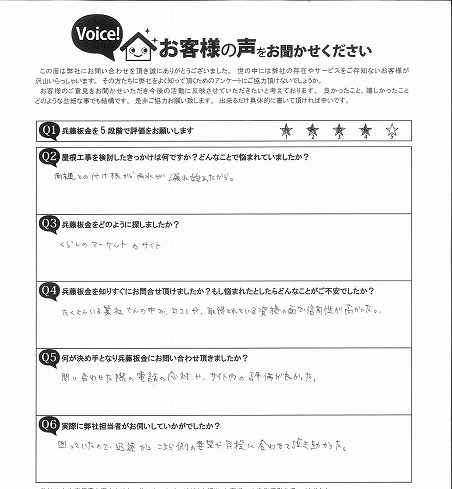 Voice!
お客様の声をお聞かせください
この度は弊社にお問い合わせを頂き誠にありがとうございました。 世の中には弊社の存在やサービスをご存知ないお客様が
沢山いらっしゃいます。 その方たちに弊社をよく知って頂くためのアンケートにご協力頂けないでしょうか。
お客様のご意見をお聞かせいただき今後の活動に反映させていただきたいと考えております。 良かったこと、嬉しかったこと
どのような些細な事でも結構です。 是非ご協力お願い致します。 出来るだけ具体的に書いて頂ければ幸いです。
Q1 兵藤板金を5段階で評価をお願いします
1 2 3 4 5
Q2 屋根工事を検討したきっかけは何ですか？どんなことで悩まれていましたか？
との付け根から雨水が漏れ始めたから。
Q3 兵藤板金をどのように探しましたか？
くらしのマーケットのサイト
Q4 兵藤板金を知りすぐにお問合せ頂けましたか？もし悩まれたとしたらどんなことがご不安でしたか？
たくさんいる業社さんの中で、口コミや、取得されている資格の面で信用性が高かった。
Q5 何が決め手となり兵藤板金にお問い合わせ頂きましたか？
問い合わせた際の電話の応対や、サイト内の評価が良かった。
Q6 実際に弊社担当者がお伺いしていかがでしたか？
困っていたので迅速かつこちら側の要望や日程に合わせて頂き助かった。